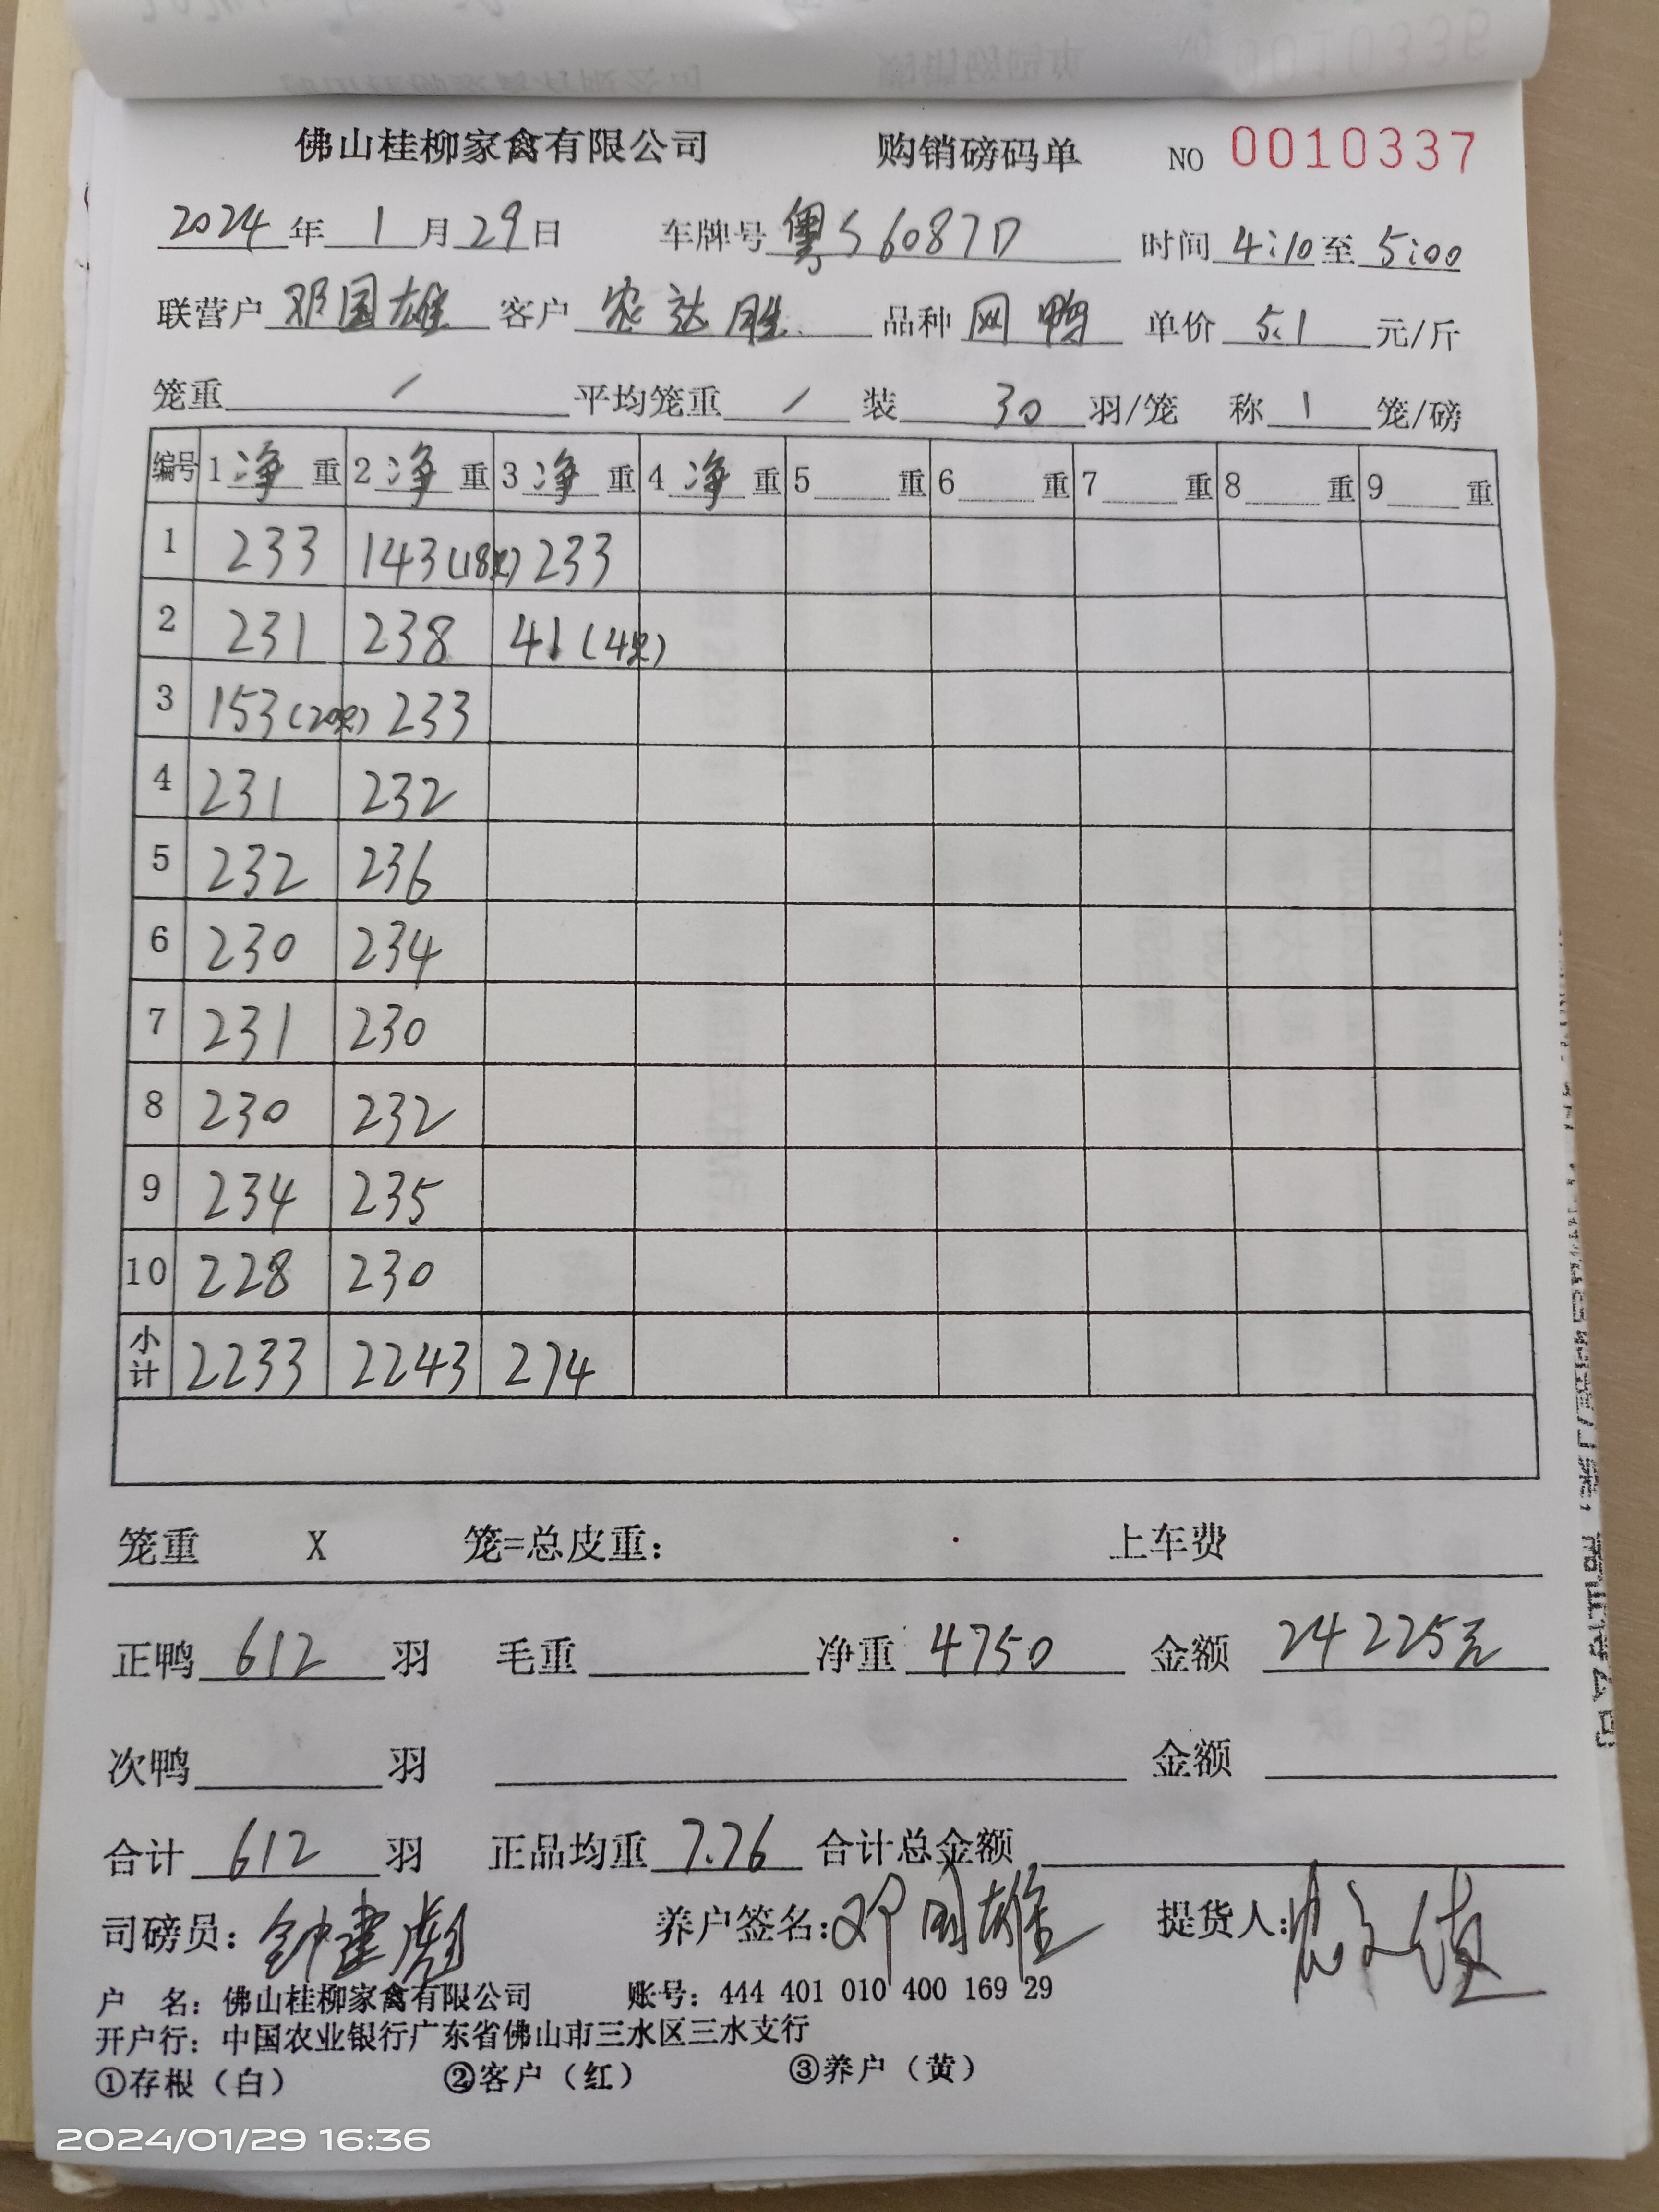 佛山桂柳家禽有限公司 购销磅码单 NO 0010337
2024年1月29日 车牌号 粤S6087D 时间 4:10至5:00
联营户 邓国雄 客户 农达胜 品种 网鸭 单价 5.1 元/斤
笼重 / 平均笼重 / 装 30 羽/笼 称 1 笼/磅
编号 1净重 2净重 3净重 4净重 5重 6重 7重 8重 9重
1 233 143(18只) 233
2 231 238 41(4只)
3 153(20只) 233
4 231 232
5 232 236
6 230 234
7 231 230
8 230 232
9 234 235
10 228 230
小计 2233 2243 274
笼重 X 笼=总皮重： 上车费
正鸭 612 羽 毛重 净重 4750 金额 24225元
次鸭 羽 金额
合计 612 羽 正品均重 7.76 合计总金额
司磅员：钟建彪 养户签名：邓国雄 提货人：
户 名：佛山桂柳家禽有限公司 账号：444 401 010 400 169 29
开户行：中国农业银行广东省佛山市三水区三水支行
①存根（白） ②客户（红） ③养户（黄）
2024/01/29 16:36